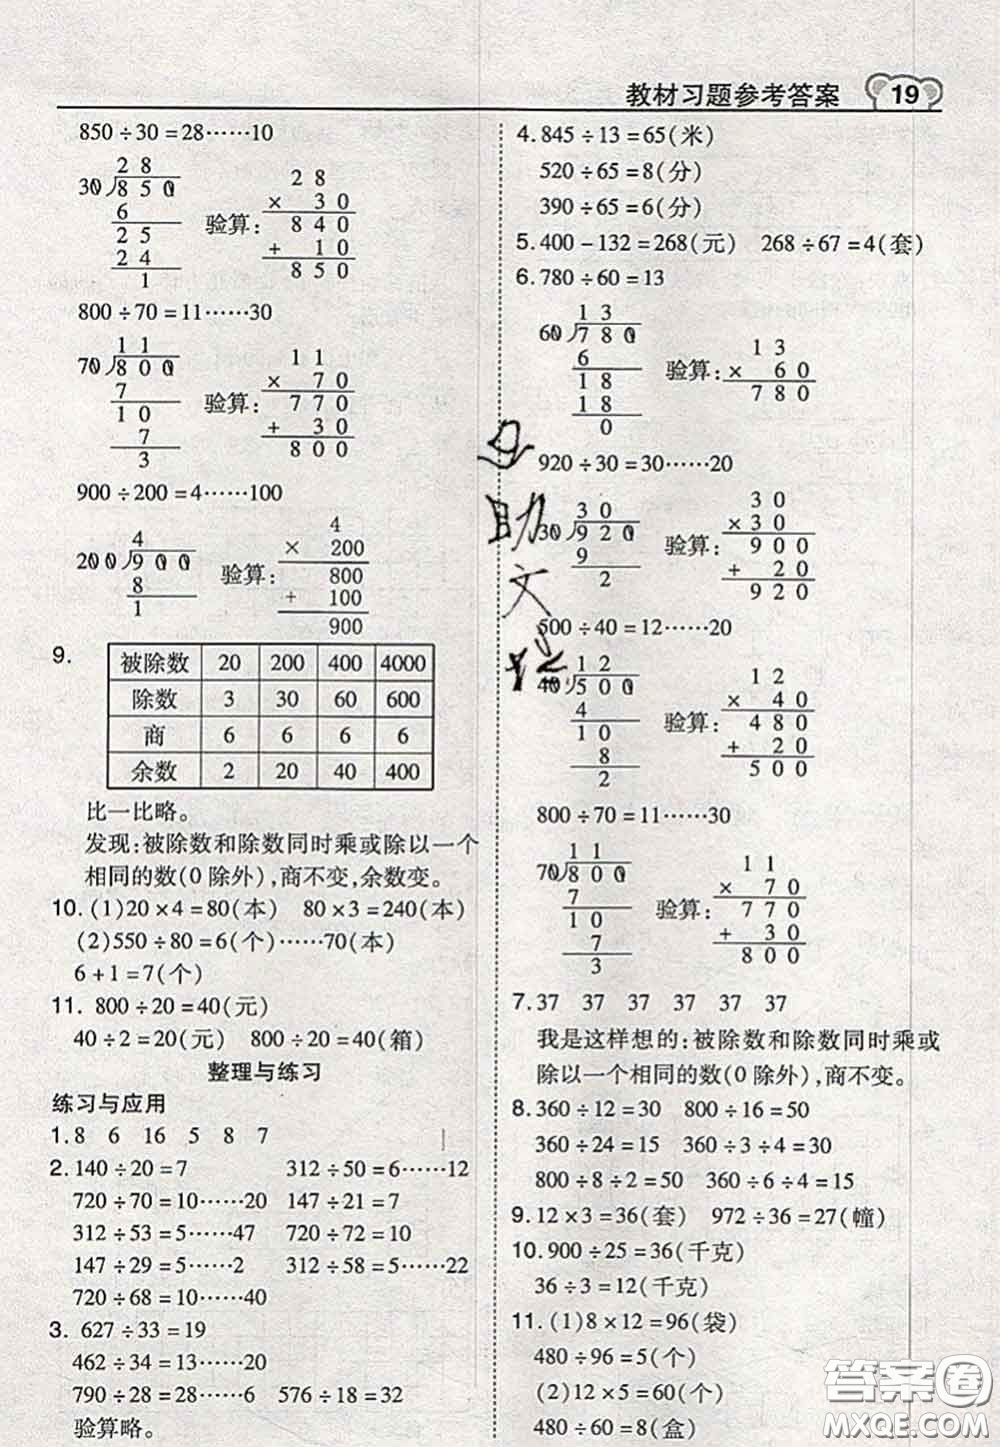 教材习题参考答案 19
850÷30=28……10
28
30 850
6
25
24
1
验算:
28
× 30
840
+ 10
850
800÷70=11……30
11
70 800
7
10
7
3
验算:
11
× 70
770
+ 30
800
900÷200=4……100
4
200 900
8
1
验算:
4
× 200
800
+ 100
900
9.
被除数 20 200 400 4000
除数 3 30 60 600
商 6 6 6 6
余数 2 20 40 400
比一比略。
发现:被除数和除数同时乘或除以一个
相同的数(0除外),商不变,余数变。
10. (1)20×4=80(本) 80×3=240(本)
(2)550÷80=6(个)……70(本)
6+1=7(个)
11. 800÷20=40(元)
40÷2=20(元) 800÷20=40(箱)
整理与练习
练习与应用
1. 8 6 16 5 8 7
2. 140÷20=7 312÷50=6……12
720÷70=10……20 147÷21=7
312÷53=5……47 720÷72=10
147÷29=5……2 312÷58=5……22
720÷68=10……40
3. 627÷33=19
462÷34=13……20
790÷28=28……6 576÷18=32
验算略。
4. 845÷13=65(米)
520÷65=8(分)
390÷65=6(分)
5. 400-132=268(元) 268÷67=4(套)
6. 780÷60=13
13
60 780
6
18
18
0
验算:
13
× 60
780
920÷30=30……20
30
30 920
9
2
验算:
30
×30
900
+ 20
920
500÷40=12……20
12
40 500
4
10
8
2
验算:
12
× 40
480
+ 20
500
800÷70=11……30
11
70 800
7
10
7
3
验算:
11
× 70
770
+ 30
800
7. 37 37 37 37 37 37
我是这样想的:被除数和除数同时乘或
除以一个相同的数(0除外),商不变。
8. 360÷12=30 800÷16=50
360÷24=15 360÷3÷4=30
800÷8÷2=50 360÷6÷4=15
9. 12×3=36(套) 972÷36=27(幢)
10. 900÷25=36(千克)
36÷3=12(千克)
11. (1)8×12=96(袋)
480÷96=5(个)
(2)12×5=60(盒)
480÷60=8(盒)
答案圈
MXQE.COM